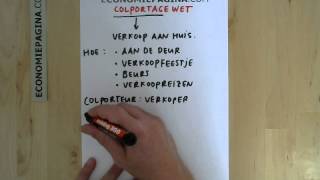 ECONOMIEPAGINA.COM
COLPORTAGE WET
VERKOOP AAN HUIS.
HOE: • AAN DE DEUR
• VERKOOPFEESTJE
• BEURS
• VERKOOPREIZEN
COLPORTEUR: VERKOPER
ECONOMIEPAGINA.COM